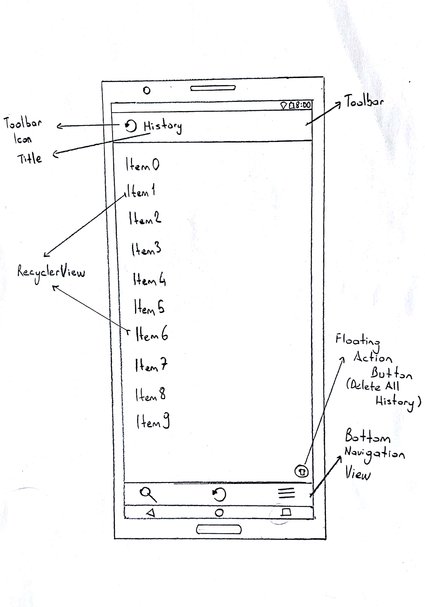 18:00
Toolbar
Toolbar
Icon
Title
History
Item0
Item1
Item2
Item3
Item4
Item5
Item6
Item7
Item8
Item9
RecyclerView
Floating
Action
Button
(Delete All
History)
Bottom
Navigation
View